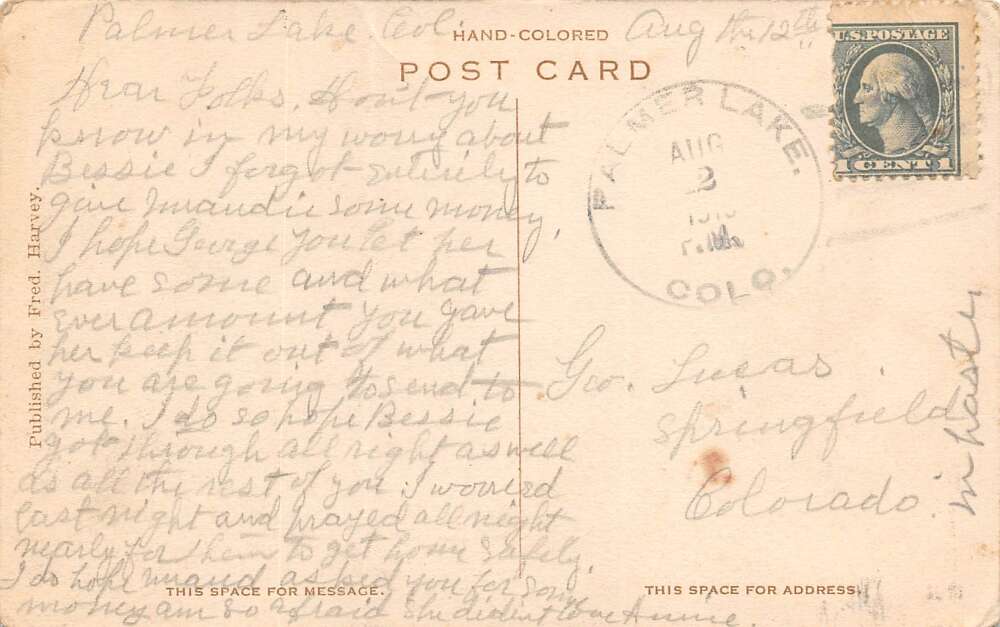 Palmer Lake. Col.
Aug the 12th
HAND-COLORED
POST CARD
U.S. POSTAGE
1 CENT 1
PALMER LAKE.
AUG
2
P.M.
COLO.
Dear Folks, Don't you
know in my worry about
Bessie I forgot entirely to
give Maudie some money,
I hope George you let her
have some and what
ever amount you gave
her keep it out of what
you are going to send to
me. I do so hope Bessie
got through all right as well
as all the rest of you I worried
last night and prayed all night
nearly for them to get home safely.
I do hope Maud asked you for some
money am so afraid she dident Annie.
Geo. Lucas
Springfield
Colorado.
in haste
Published by Fred. Harvey.
THIS SPACE FOR MESSAGE.
THIS SPACE FOR ADDRESS.